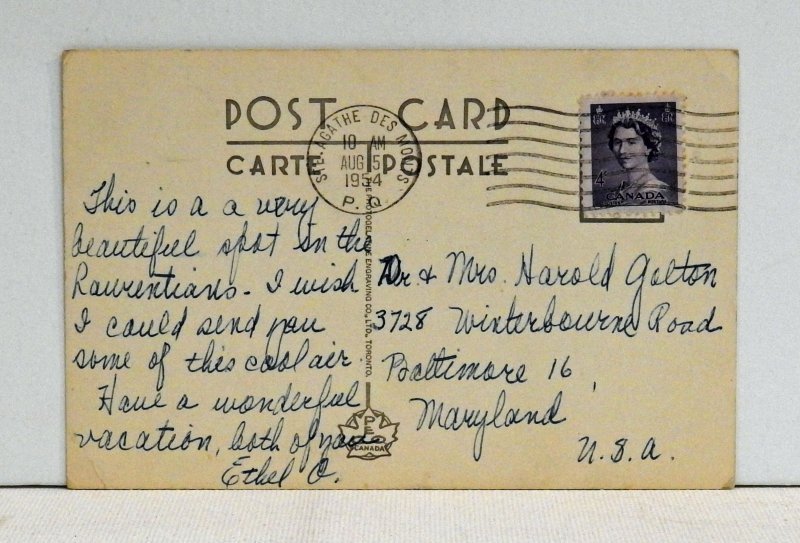 POST CARD
CARTE POSTALE
STE. AGATHE DES MONTS
10 AM
AUG 5
1954
P. Q.
4¢
CANADA
This is a a very
beautiful spot in the
Laurentians. I wish
I could send you
some of this cool air.
Have a wonderful
vacation, both of you
Ethel O.
THE PHOTOGELATINE ENGRAVING CO., LTD., TORONTO.
PECO
CANADA
Dr. & Mrs. Harold Golton
3728 Winterbourne Road
Baltimore 16,
Maryland
U.S.A.